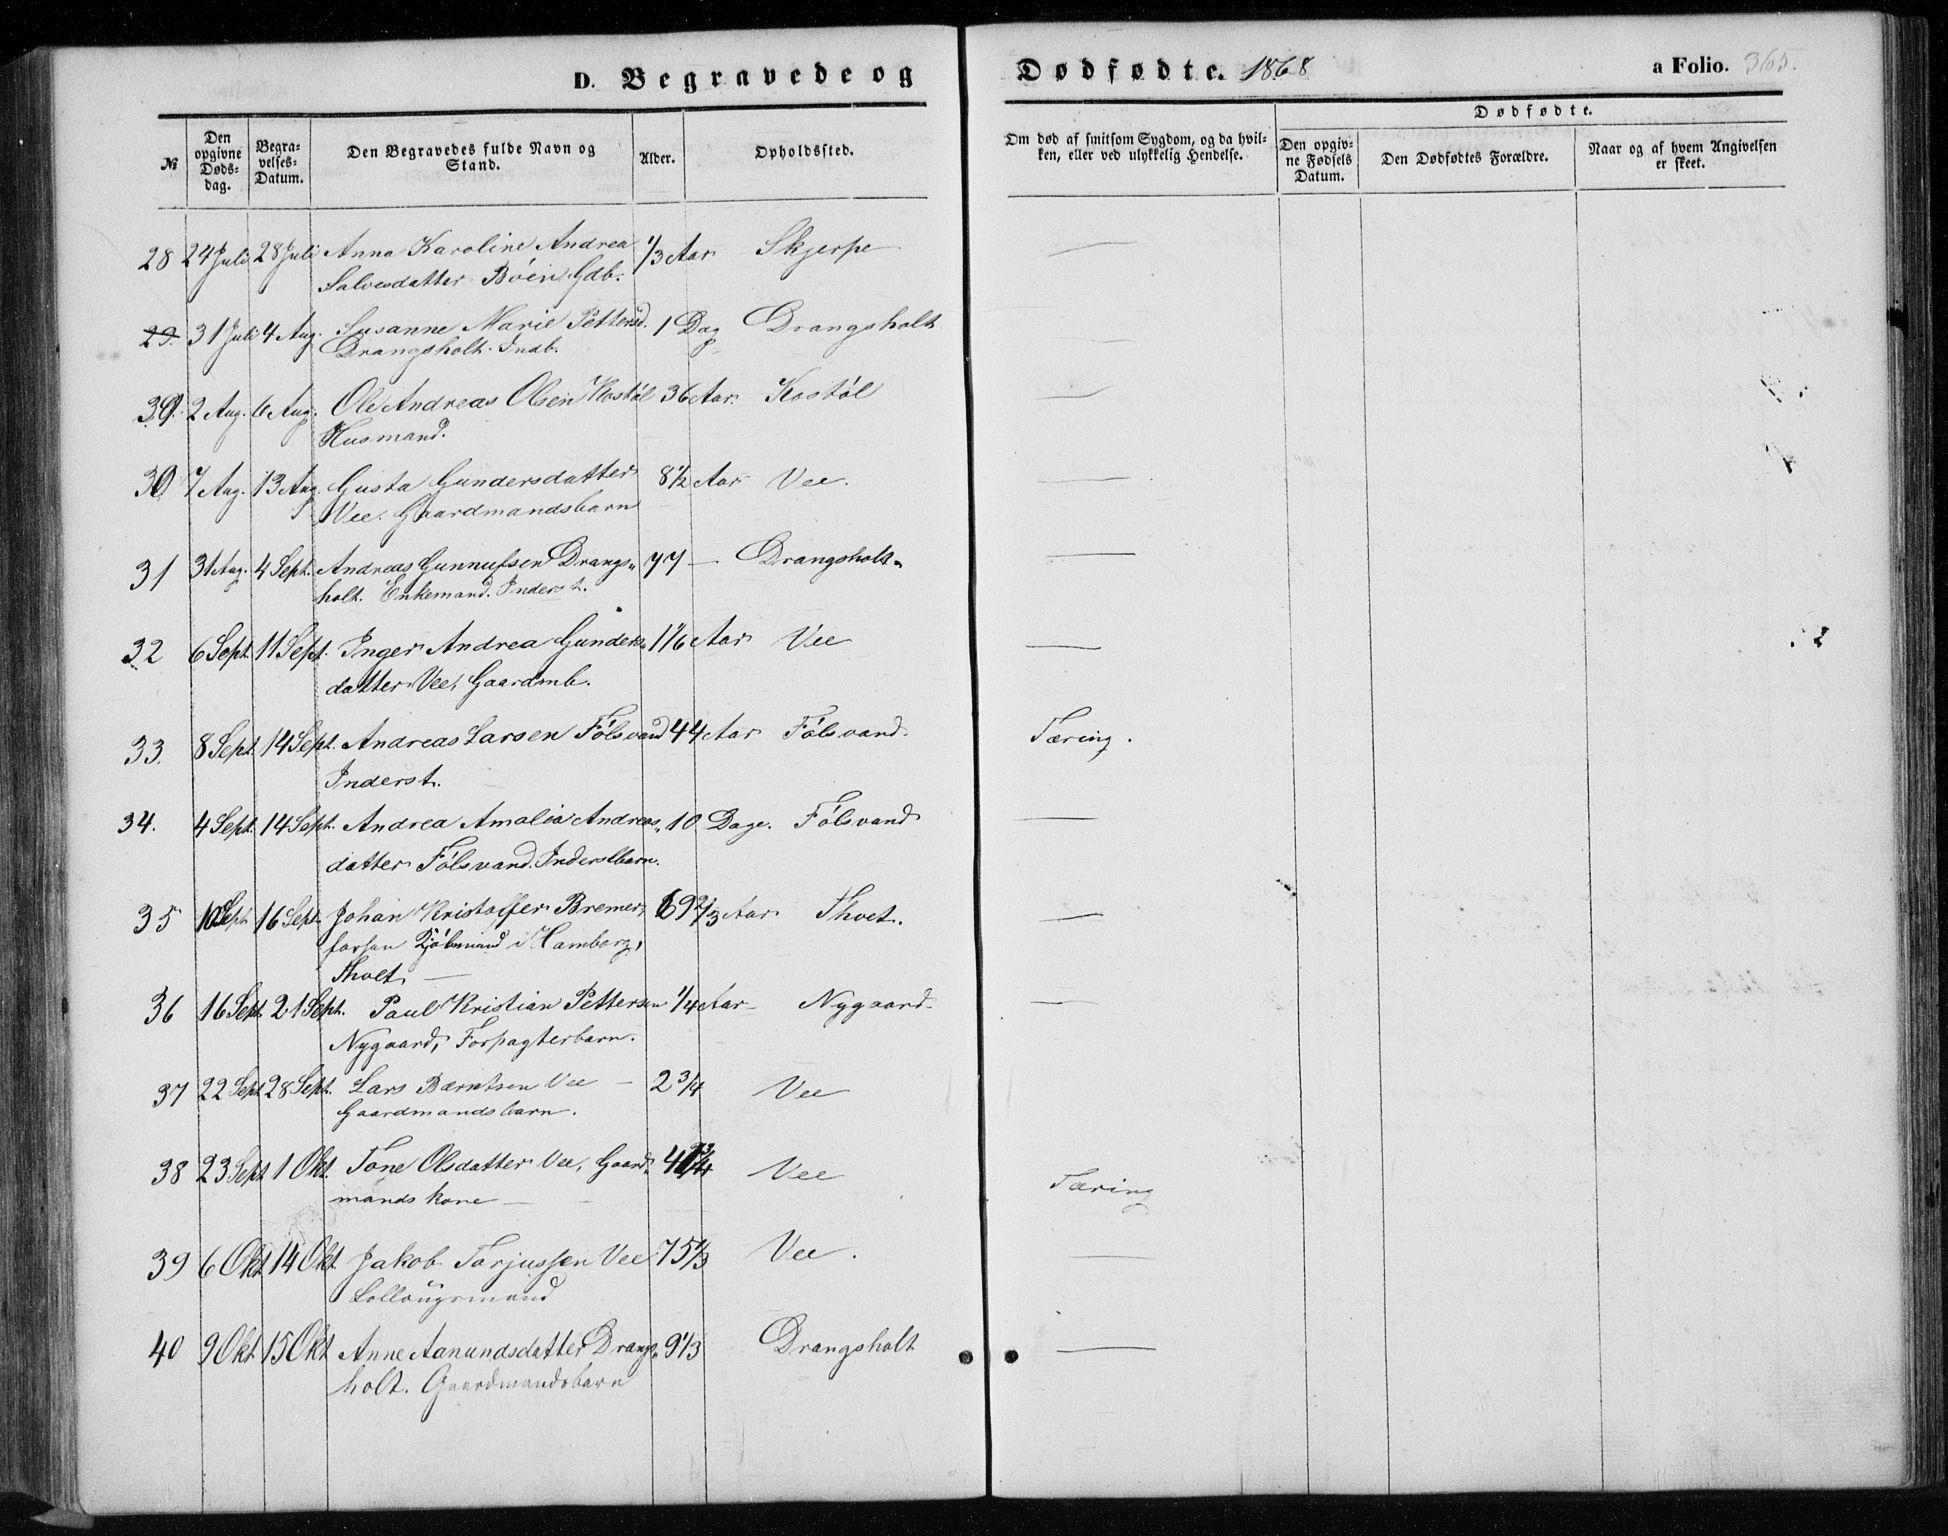 D. Begravede og Dødfødte. 1868 a Folio. 365.
Dødfødte.
№ Den opgivne Døds-dag. Begra-velses-Datum. Den Begravedes fulde Navn og Stand. Alder. Opholdssted. Om død af smitsom Sygdom, og da hvil-ken, eller ved ulykkelig Hendelse. Den opgiv-ne Fødsels Datum. Den Dødfødtes Forældre. Naar og af hvem Angivelsen er skeet.
28 24 Juli 28 Juli Anna Karoline Andrea 1/3 Aar Skjerpe —
Salvesdatter Bøen Gdb.
29. 31 Juli 4 Aug. Susanne Marie Pettersd. 1 Dag Drangsholt —
Drangsholt. Indb.
29. 2 Aug. 6 Aug. Ole Andreas Olsen Kostøl 36 Aar. Kostøl —
Husmand.
30 7 Aug. 13 Aug. Gusta Gundersdatter 8 1/2 Aar Vee. —
Vee. Gaardmandsbarn
31 31 Aug. 4 Sept. Andreas Gunnufsen Drangs„ 77 — Drangsholt. —
holt. Enkemand. Inderst.
32 6 Sept. 11 Sept. Inger Andrea Gunders„ 1 1/6 Aar Vee —
datter Vee, Gaardmb.
33. 8 Sept. 14 Sept. Andreas Larsen Følsvand 44 Aar Følsvand. Tæring.
Inderst.
34. 4 Sept. 14 Sept. Andrea Amalia Andreas„ 10 Dage. Følsvand —
datter Følsvand. Inderstbarn.
35 10 Sept. 16 Sept. Johan Kristoffer Bremer, 69 2/3 Aar Thvet. —
forhen Kjøbmand i Hamborg,
Thvet —
36 16 Sept. 21 Sept. Paul Kristian Pettersen 1/4 Aar — Nygaard. —
Nygaard, Forpagterbarn.
37 22 Sept 28 Sept. Lars Bærntsen Vee — 2 3/4 Vee
Gaardmandsbarn.
38 23 Sept 1 Okt. Tone Olsdatter Vee, Gaard„ Vee Tæring
mands kone —
39 6 Okt 14 Okt. Jakob Torjussen Vee 75 1/3 Vee. —
Follougsmand
40 9 Okt 15 Okt Anne Aanundsdatter Drangs„ 9 1/3 Drangsholt —
holt. Gaardmandsbarn